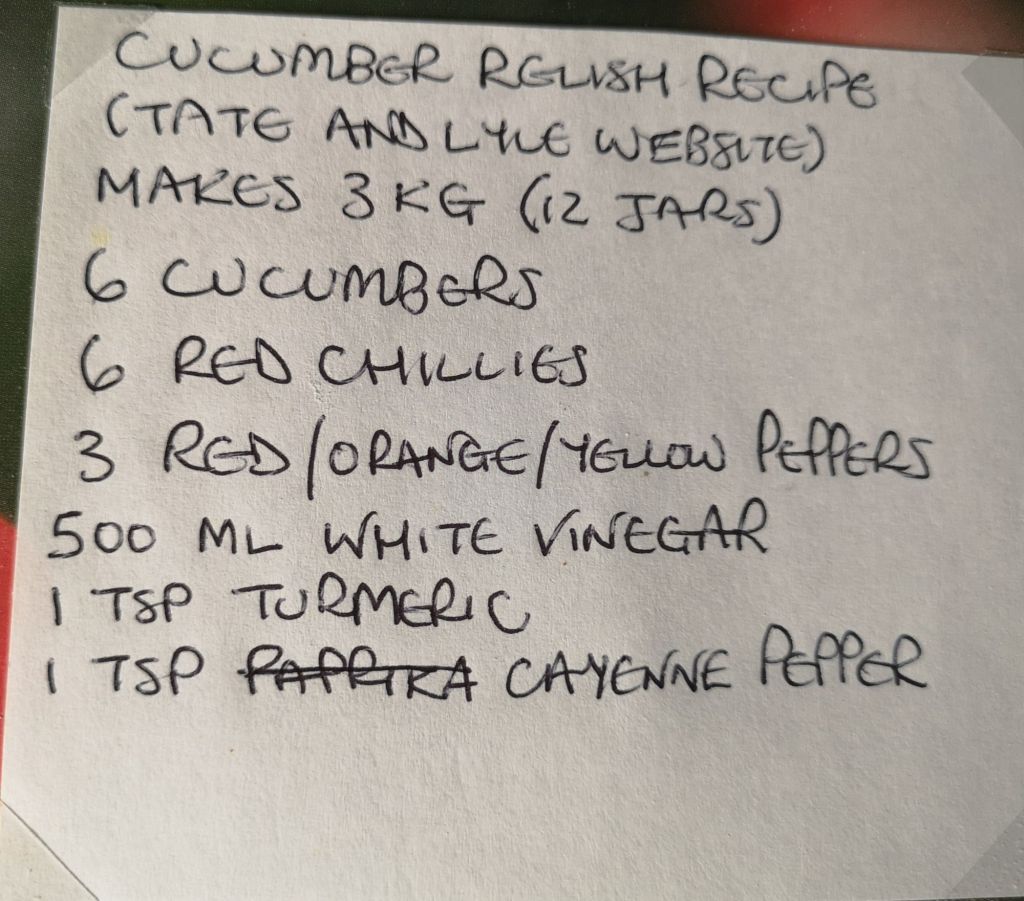 CUCUMBER RELISH RECIPE
(TATE AND LYLE WEBSITE)
MAKES 3 KG (12 JARS)
6 CUCUMBERS
6 RED CHILLIES
3 RED/ORANGE/YELLOW PEPPERS
500 ML WHITE VINEGAR
1 TSP TURMERIC
1 TSP PAPRIKA CAYENNE PEPPER